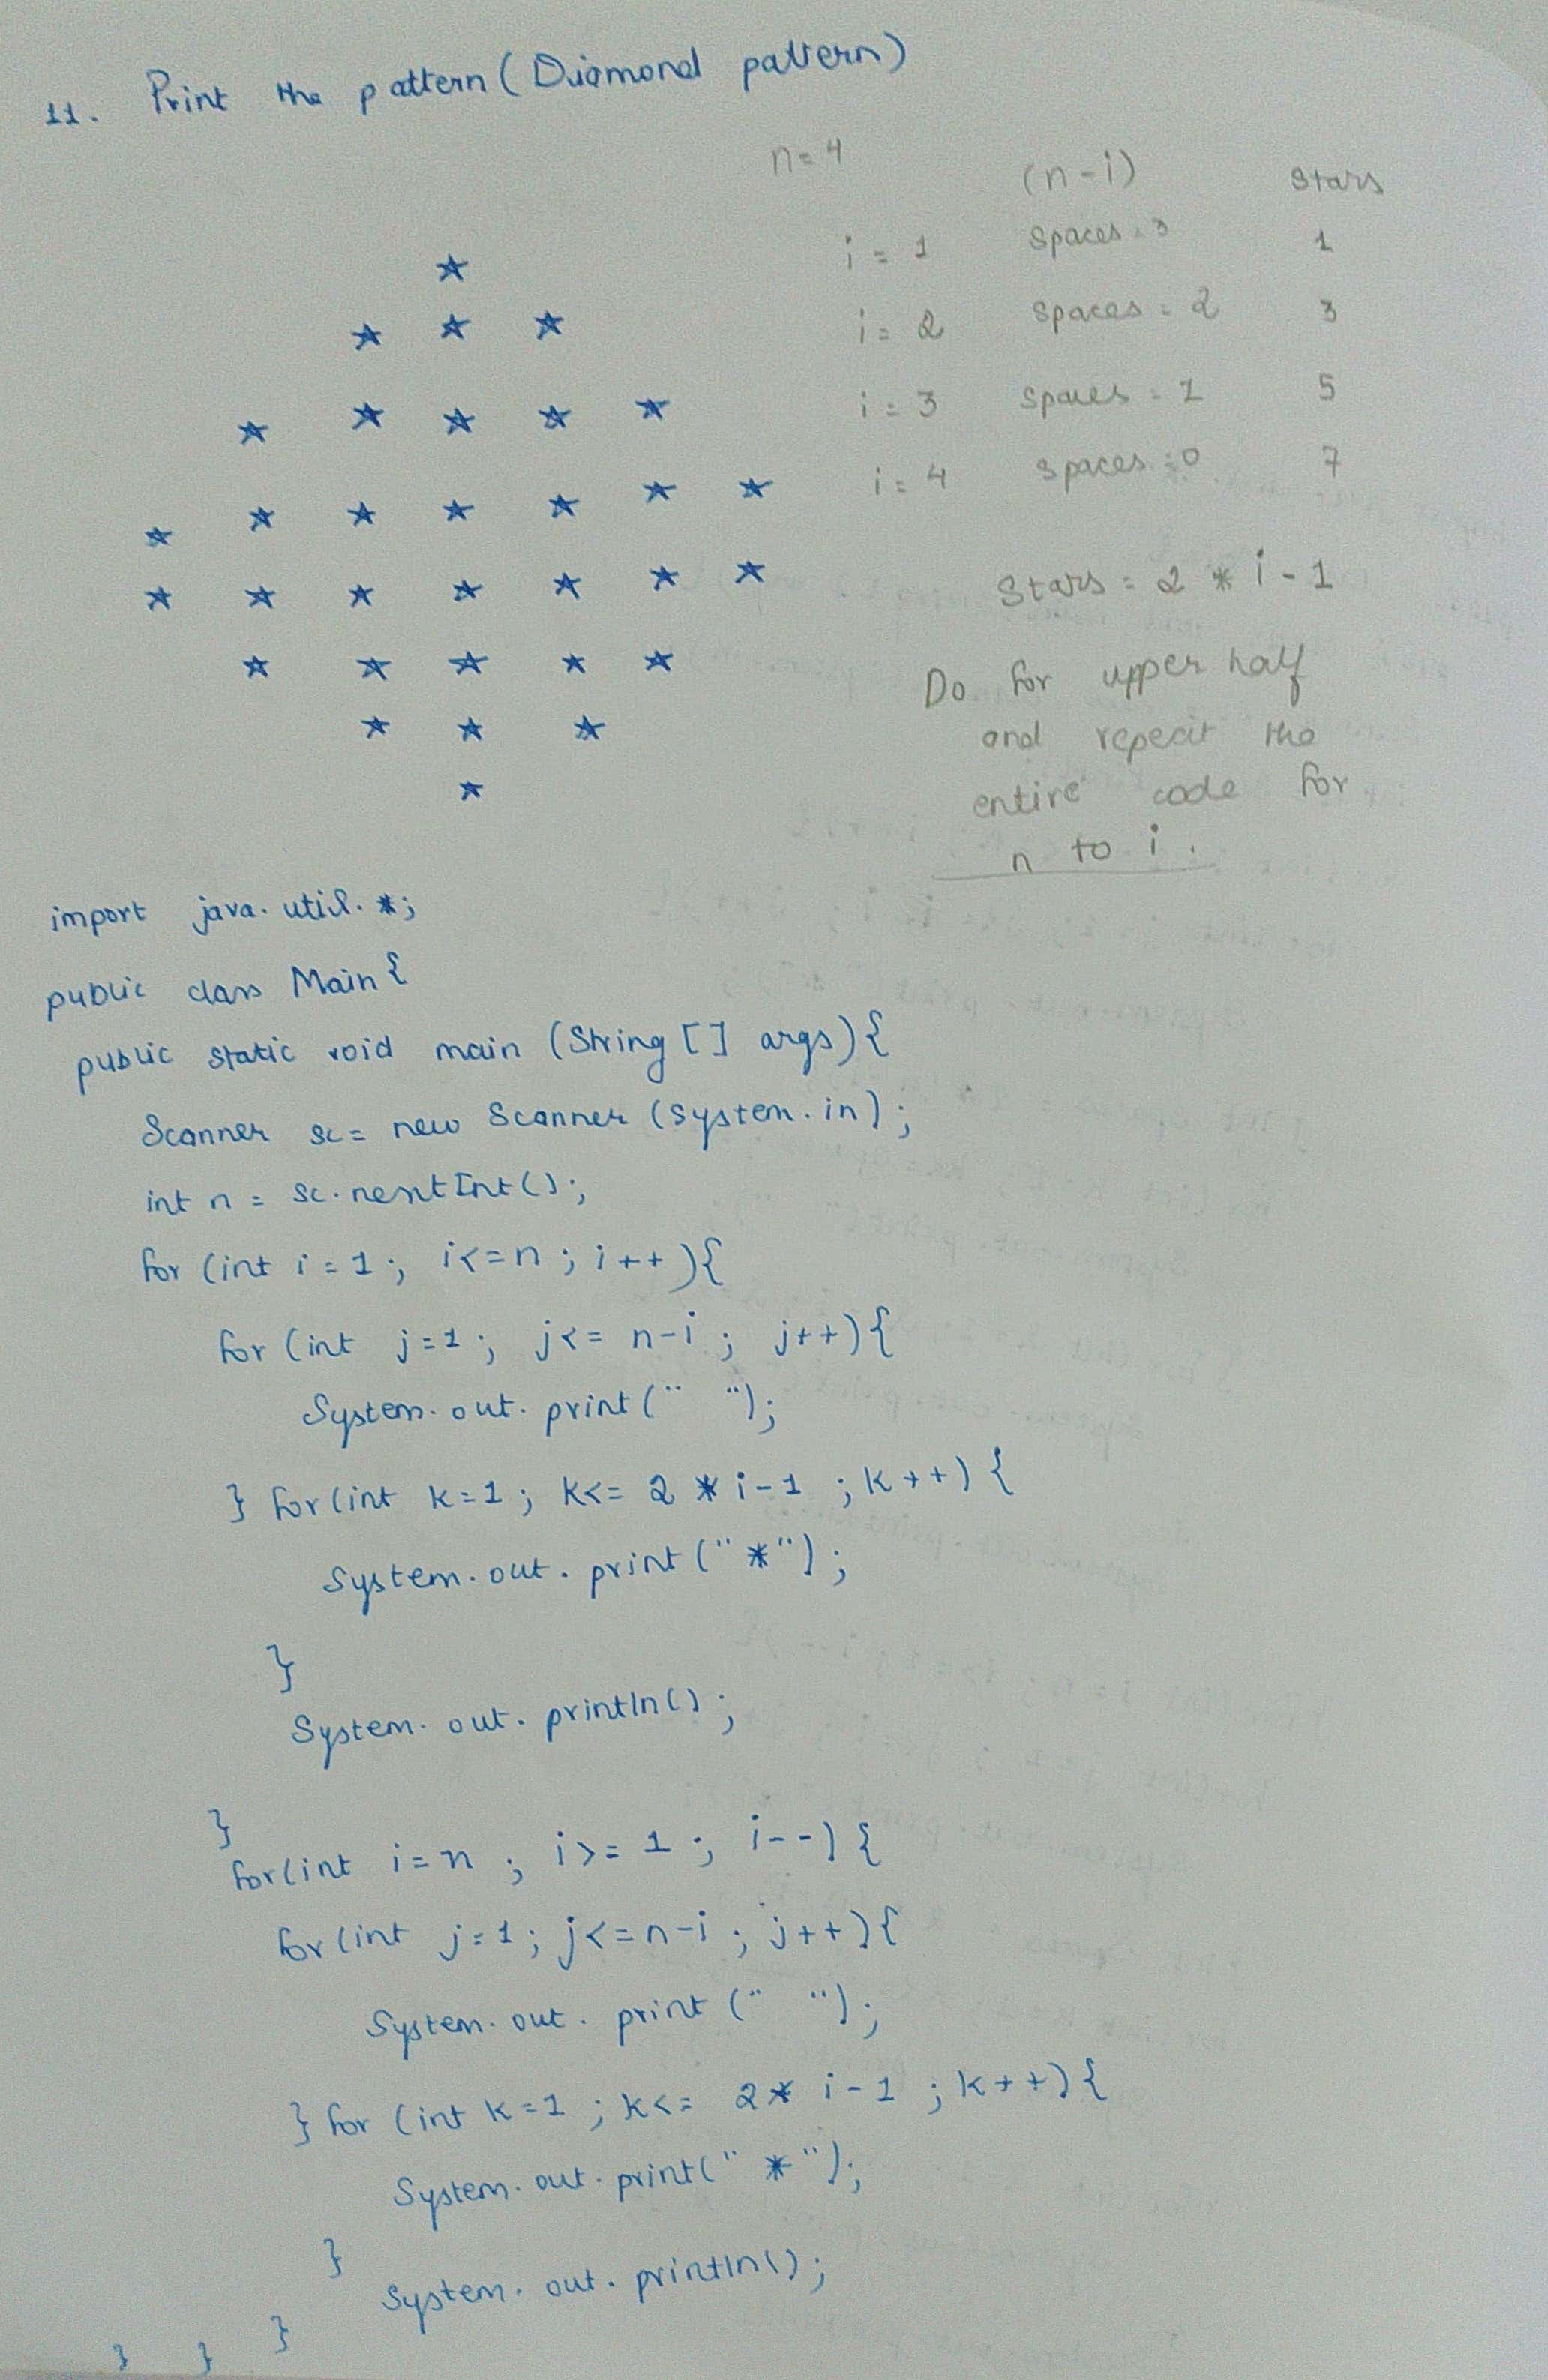 11. Print the pattern (Diamond pattern)
n=4
(n-i) Stars
i = 1 Spaces = 3 1
i = 2 Spaces = 2 3
i = 3 Spaces = 1 5
i = 4 Spaces = 0 7
*
* * *
* * * * *
* * * * * * *
* * * * * * *
* * * * *
* * *
*
Stars = 2 * i - 1
Do for upper half
and repeat the
entire code for
n to i.
import java.util.*;
public class Main {
public static void main (String [] args) {
Scanner sc = new Scanner (System.in);
int n = sc.nextInt();
for (int i = 1; i<=n; i++) {
for (int j=1; j<= n-i; j++) {
System.out.print(" ");
} for (int k=1; k<= 2 * i-1; k++) {
System.out.print("*");
}
System.out.println();
}
for (int i=n; i>= 1; i--) {
for (int j=1; j<=n-i; j++) {
System.out.print(" ");
} for (int k=1; k<= 2* i-1; k++) {
System.out.print(" *");
}
System.out.println();
} } }